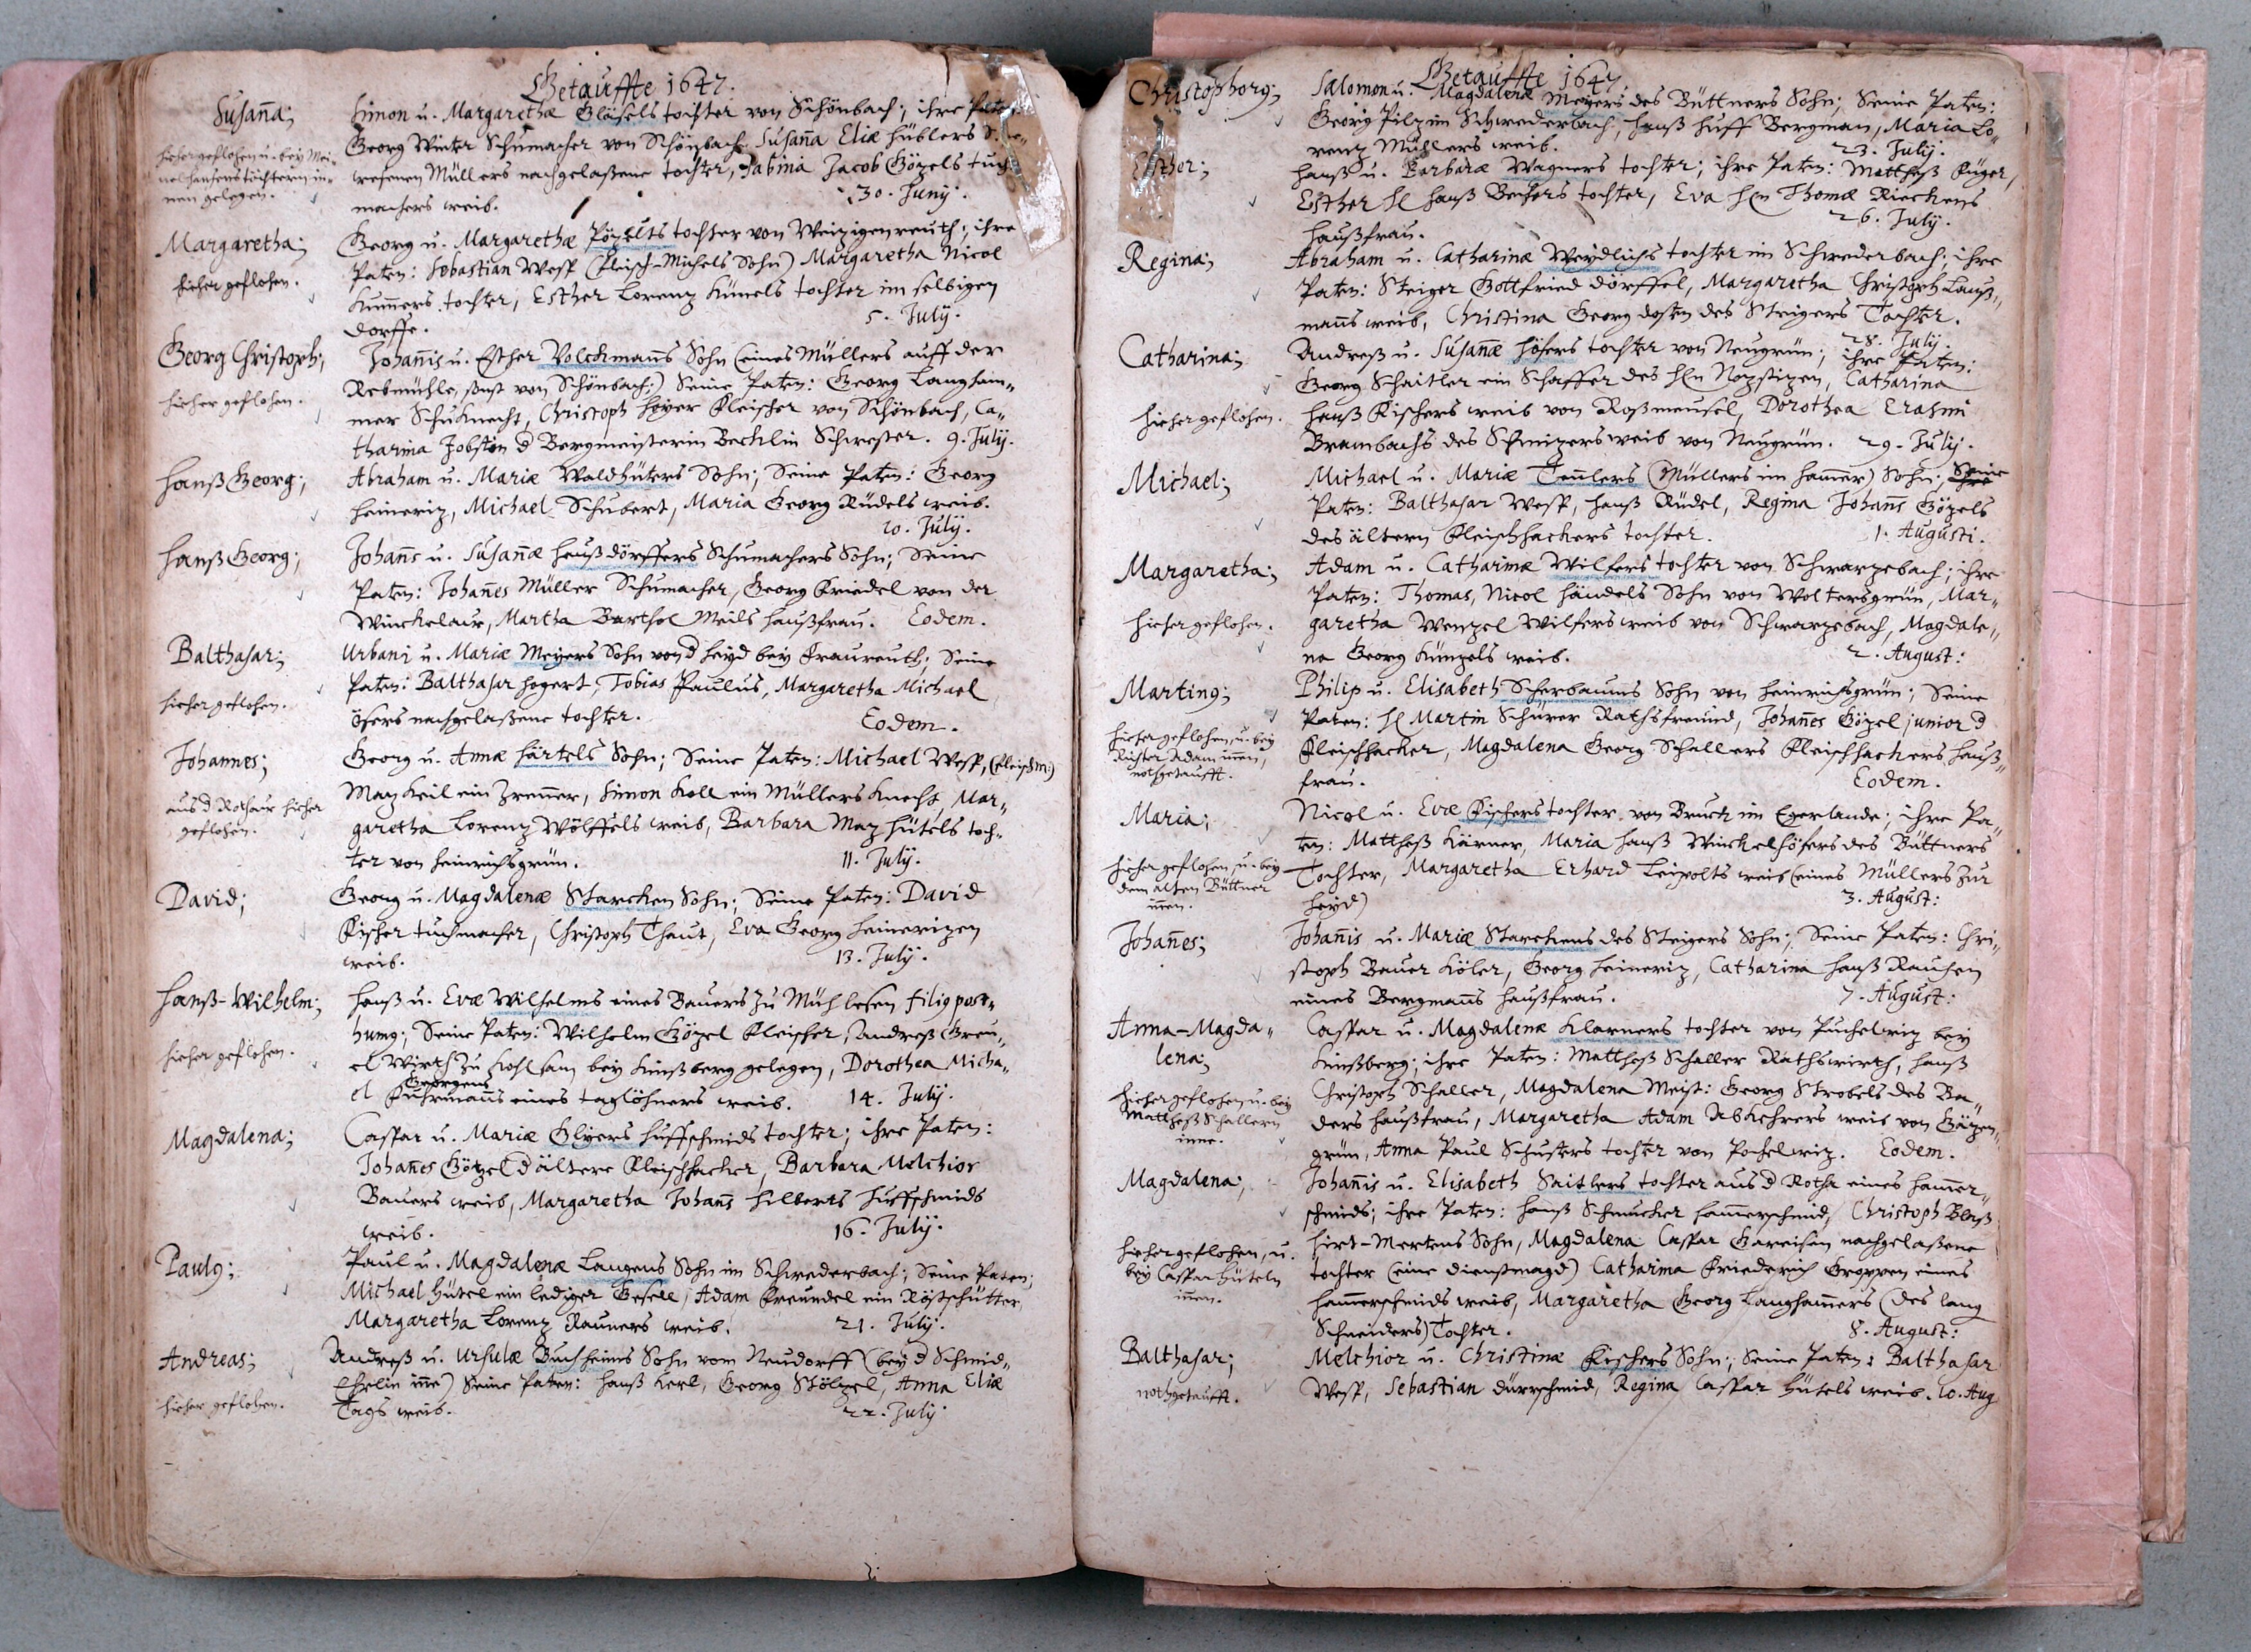 Getauffte 1647.
Susanna;
hieher geflohen u. bey Mei-
nel hansens töchtern in-
nen gelegen.
Simon u. Margarethæ Gläsels tochter von Schönbach; ihre Paten:
Georg Winter Schumacher von Schönbach Susanna Eliæ Hüblers
wesenen Müllers nachgelaßene tochter, Sabina Jacob Götzels tuch-
machers weib. 30. Juny.
Margaretha;
hieher geflohen.
Georg u. Margarethæ Pözelts tochter von Weitzigenreuth; ihre
Paten: Sebastian Wesp (fleisch-Michels Sohn) Margaretha Nicol
Kummers tochter, Esther Lorenz Künels tochter im selbigen
dorffe. 5. July.
Georg Christoph;
hieher geflohen.
Johannis u. Esther Volckmanns Sohn (eines Müllers auff der
Rebmühle, sonst von Schönbach:) Seine Paten: Georg Langham-
mer Schuknecht, Christoph heyer fleischer von Schönbach, Ca-
tharina Jobstin d Bergmeisterin Bechlin Schwester. 9. July.
Hanß Georg;
Abraham u. Mariæ Waldhüters Sohn; Seine Paten: Georg
Heineritz, Michael Schubert, Maria Georg Rüdels weib.
10. July.
Hanß Georg;
Johanns u. Susannæ Heußdörffers Schumachers Sohn; Seine
Paten: Johannes Müller Schumacher, Georg Friedel von der
Winckelaur, Martha Barthol Meils haußfrau. Eodem.
Balthasar;
hieher geflohen.
Urbani u. Mariæ Meyers Sohn von d heyd bey Fraureuth; Seine
Paten: Balthasar hegert, Tobias Paulus, Margaretha Michael
ösers nachgelaßene tochter. Eodem.
Johannes;
aus d Rothaur hieher
geflohen.
Georg u. Annæ härtels Sohn; Seine Paten: Michael Wesp, (fleischm:)
Matz Keil ein Zrenner, Simon Koll ein Müllers Knecht, Mar-
garetha Lorenz Wölffels weib, Barbara Matz Hütels toch-
ter von heinrichsgrün. 11. July.
David;
Georg u. Magdalenæ Starcken Sohn; Seine Paten: David
Fischer tuchmacher, Christoph Thaut, Eva Georg Heineritzen
weib. 13. July.
Hanß-Wilhelm;
hieher geflohen.
Hanß u. Evæ Wilhelms eines Bauers zu Mühlesen filiq post-
humq; Seine Paten: Wilhelm Götzel fleischer, Andreß Greu-
el Wirth zu bey Kinsberg gelegen, Dorothea Micha-
Georgens
el Fuhrmanns eines taglöhners weib. 14. July.
Magdalena;
Caspar u. Mariæ Glyers Huffschmids tochter; ihre Paten:
Johannes Götzel d ältere fleischhacker, Barbara Melchior
Bauers weib, Margaretha Johanns Hilberts huffschmids
weib. 16. July.
Paulq;
Paul u. Magdalenæ Langens Sohn im Schwederbach; Seine Paten;
Michael Hütel ein lediger Gesell, Adam Freundel ein Röstschütter,
Margaretha Lorenz Rauners weib. 21. July.
Andreas;
hieher geflohen.
Andreß u. Ursulæ Buchheims Sohn vom Neudorff (bey d Schmid-
inne) Seine Paten: Hanß Kerl, Georg Stölzel, Anna Eliæ
Tags weib. 22. July.
Getauffte 1647
Christophorq;
Salomon u. Magdalenæ Meyers des Büttners Sohn; Seine Paten:
Georg Pilz im Schwederbach, Hanß Huff Bergman, Maria Lo-
renz Müllers weib. 23. July.
Esther;
Hanß u. Barbaræ Wagners tochter; ihre Paten: Mattheß Füger,
Esther H Hanß Bechers tochter, Eva Hn Thomæ Rieckens
haußfrau. 26. July.
Regina;
Abraham u. Catharinæ Weydlichs tochter im Schwederbach; ihre
Paten: Steiger Gottfried dörffel, Margaretha Christoph Lauß-
manns weib, Christina Georg dosten des Steigers Tochter.
28. July.
Catharina;
hieher geflohen.
Andreß u. Susannæ Höfers tochter von Neugrün; ihre Paten:
Georg Schaitler ein Schaffer des Hn Nopstizen, Catharina
Hanß Fischers weib von Roßmeusel, Dorothea Erasmi
Brambachs des Schnizers weib von Neugrün. 29. July.
Michael;
Michael u. Mariæ Tennlers (Müllers im hammer) Sohn; Seine
Paten: Balthasar Wesp, Hanß Rüdel, Regina Johanns Götzels
des ältern fleischhackers tochter. 1. Augusti.
Margaretha;
hieher geflohen.
Adam u. Catharinæ Wilfers tochter von Schwarzebach; ihre
Paten: Thomas, Nicol Händels Sohn von Woltersgrün, Mar-
garetha Wenzel Wilfers weib von Schwarzebach, Magdale-
na Georg Künzels weib. 2. August:
Martinq;
hieher geflohen, u. bey
Richter Adam innen,
nothgetaufft.
Philip u. Elisabeth Scherbaums Sohn von Heinrichsgrün; Seine
Paten: H Martin Schürer Rathsfreund, Johannes Götzel junior d
fleischhacker, Magdalena Georg Schallers fleischhackers hauß-
frau. Eodem.
Maria;
hieher geflohen, u. bey
dem alten Büttner
innen.
Nicol u. Evæ Fischers tochter von Bruck im Egerlande; ihre Pa-
ten: Mattheß Kärner, Maria Hanß Winckelhöfers des Büttners
Tochter, Margaretha Erhard Leipolts weib (eines Müllers zur
heyd) 3. August:
Johannes;
Johannis u. Mariæ Starckens des Steigers Sohn; Seine Paten: Chri-
stoph Bauer Köler, Georg Heineritz, Catharina Hanß Rauhen
eines Bergmanns haußfrau. 7. August:
Anna-Magda-
lena;
hieher geflohen u. bey
Mattheß Schallern
inne.
Caspar u. Magdalenæ Klarners tochter von Puchelwitz bey
Kinßberg; ihre Paten: Mattheß Schaller Rathswirth, Hanß
Christoph Schaller, Magdalena Meist: Georg Strobels des Ba-
ders haußfrau, Margaretha Adam Abkehrers weib von Götzen-
grün, Anna Paul Schusters tochter von Pochelwitz. Eodem.
Magdalena;
hieher geflohen, u.
bey Caspar Hüteln
innen.
Johannis u. Elisabeth Saitlers tochter aus d Rotha eines hammer-
schmids; ihre Paten: Hanß Schmucker hammerschmid, Christoph Blaß
hirt-Mertens Sohn, Magdalena Caspar Gareisen nachgelaßene
tochter (eine dienstmagd) Catharina Friederich Groppen eines
hammerschmids weib, Margaretha Georg Langhammers (des lang
Schneiders) Tochter. 8. August:
Balthasar;
nothgetaufft.
Melchior u. Christinæ Fischers Sohn; Seine Paten: Balthasar
Wesp, Sebastian Dürrschmid, Regina Caspar Hütels weib. 10. Aug